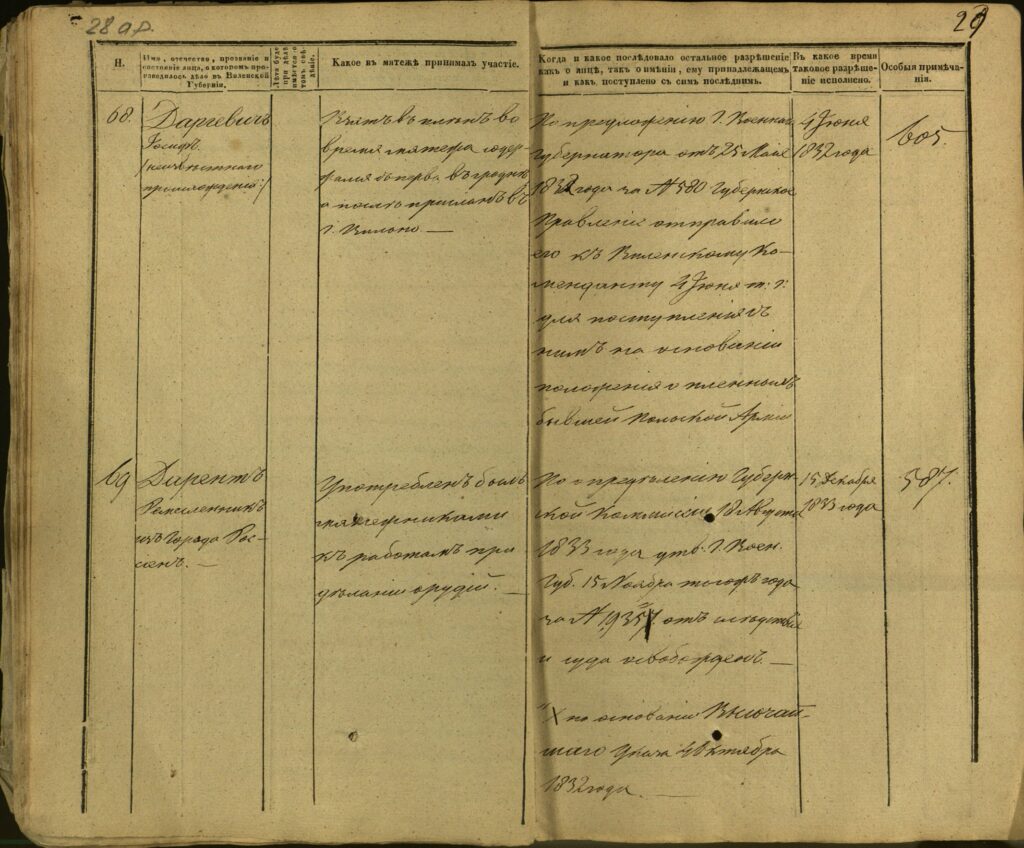 28 об.
29
Н.
Имя, отчество, прозваніе и
состояніе лица, о которомъ про-
изводилось дѣло въ Виленской
Губерніи.
Какое въ мятежѣ принималъ участіе.
Когда и какое послѣдовало остальное разрѣшеніе
какъ о лицѣ, такъ о имѣніи, ему принадлежащемъ
и какъ поступлено съ симъ послѣднимъ.
Въ какое время
таковое разрѣше-
ніе исполнено.
Особыя примѣча-
нія.
68.
Даргевичъ
Іосифъ
/неизвѣстнаго
происхожденія:/
Взятъ въ плѣнъ во
время мятежа содер-
жался сперва въ Гродни
а послѣ присланъ въ
г. Вильно —
По предложенію Г. Военнаго
Губернатора отъ 25 Маія
1832 года за № 580 Губернское
Правленіе отправило
его къ Виленскому Ко-
менданту 4 Іюня т: г:
для поступленія съ
нимъ на основаніи
положенія о плѣнныхъ
бывшей Польской Арміи
4 Іюня
1832 года
605.
69
Дирентъ
Ремесленникъ
изъ Города Рос-
сіенъ. —
Употребленъ былъ
мятежниками
къ работамъ при
дѣланіи орудій. —
По опредѣленію Губерн-
ской Коммиссіи 18 Августа
1833 года утв. Г. Воен.
Губ. 15 Ноября тогожъ года
за № 1935 отъ слѣдствія
и суда освобожденъ —
15 Декабря
1833 года
587.
X на основаніи Высочай-
шаго Указа 4 Октября
1832 года —